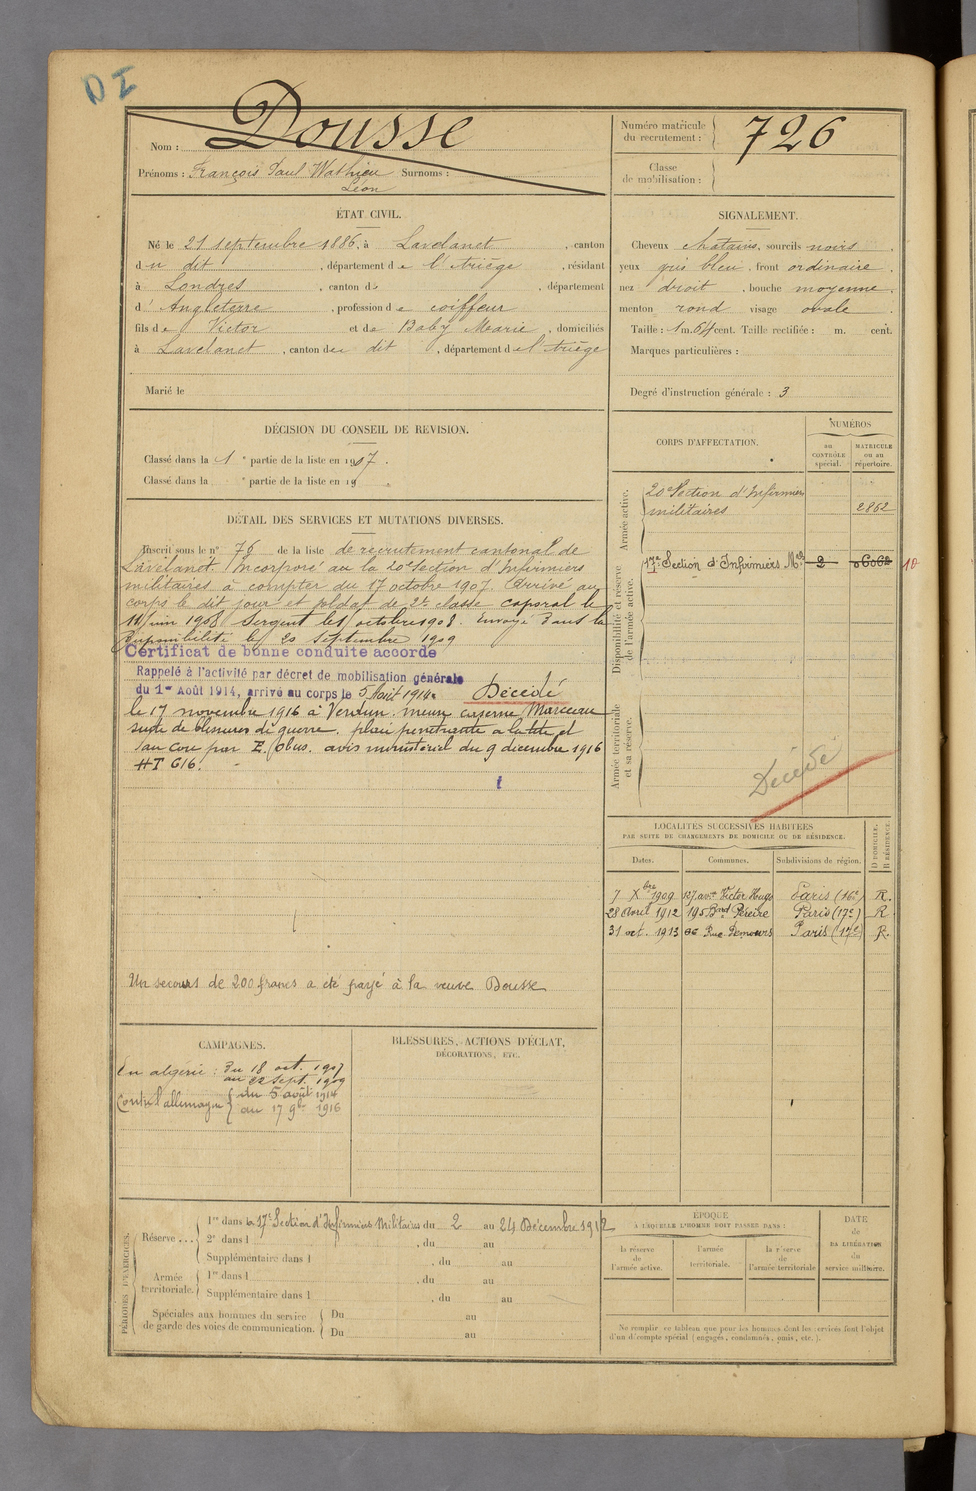 DI
Nom : Dousse
Prénoms : François Paul Mathieu Surnoms :
Léon
Numéro matricule
du recrutement : 726
Classe
de mobilisation :
ÉTAT CIVIL.
Né le 21 septembre 1886, à Lavelanet, canton
du dit, département de l'Ariège, résidant
à Londres, canton d, département
d'Angleterre, profession de coiffeur
fils de Victor et de Baby Marie, domiciliés
à Lavelanet, canton de dit, département de l'Ariège
Marié le
SIGNALEMENT.
Cheveux chatains, sourcils noirs.
yeux gris bleu, front ordinaire.
nez droit, bouche moyenne.
menton rond visage ovale.
Taille : 1 m. 64 cent. Taille rectifiée : m. cent.
Marques particulières :
Degré d'instruction générale : 3
DÉCISION DU CONSEIL DE REVISION.
Classé dans la 1e partie de la liste en 1907.
Classé dans la e partie de la liste en 19 .
DÉTAIL DES SERVICES ET MUTATIONS DIVERSES.
Inscrit sous le n° 76 de la liste de recrutement cantonal de
Lavelanet. Incorporé au la 20e Section d'Infirmiers
militaires à compter du 17 octobre 1907. Arrivé au
corps le dit jour et soldat de 2e classe caporal le
11 juin 1908 Sergent le 1 octobre 1908. Envoyé dans la
disponibilité le 20 septembre 1909
Certificat de bonne conduite accordé
Rappelé à l'activité par décret de mobilisation générale
du 1er Août 1914, arrivé au corps le 5 Août 1914. Décédé
le 17 novembre 1916 à Verdun. meuse caserne Marceau
suite de blessures de guerre. plaie penetrante a la tete et
au cou par E. Obus. avis ministériel du 9 decembre 1916
HT 616.
Un secours de 200 francs a été payé à la veuve Dousse
CORPS D'AFFECTATION.
NUMÉROS
au
CONTRÔLE
spécial.
MATRICULE
ou au
répertoire.
Armée active.
20e Section d'Infirmiers
militaires 2862
Disponibilité et réserve
de l'armée active.
17e Section d'Infirmiers Mres 2 06062 10
Armée territoriale
et sa réserve.
Décédé
LOCALITÉS SUCCESSIVES HABITÉES
PAR SUITE DE CHANGEMENTS DE DOMICILE OU DE RÉSIDENCE.
Dates. Communes. Subdivisions de région. D DOMICILE. R RÉSIDENCE.
7 Xbre 1909 127 ave Victor Hugo Paris (16e) R.
28 Avril 1912 195 Bard Péreire Paris (17e) R
31 oct. 1913 Rue Demours Paris (17e) R.
CAMPAGNES.
En algérie : du 18 oct. 1907
au 22 Sept. 1909
Contre l'allemagne du 5 août 1914
au 17 9bre 1916
BLESSURES, ACTIONS D'ÉCLAT,
DÉCORATIONS, ETC.
PÉRIODES D'EXERCICES.
Réserve...
1re dans la 17e Section d'Infirmiers Militaires du 2 au 24 Décembre 1912
2e dans l , du au
Supplémentaire dans l , du au
Armée
territoriale.
1re dans l , du au
Supplémentaire dans l , du au
Spéciales aux hommes du service
de garde des voies de communication.
Du au
Du au
ÉPOQUE
A LAQUELLE L'HOMME DOIT PASSER DANS :
la réserve
de
l'armée active.
l'armée
territoriale.
la réserve
de
l'armée territoriale
DATE
de
LA LIBÉRATION
du
service militaire.
Ne remplir ce tableau que pour les hommes dont les services font l'objet
d'un décompte spécial (engagés, condamnés, omis, etc.).